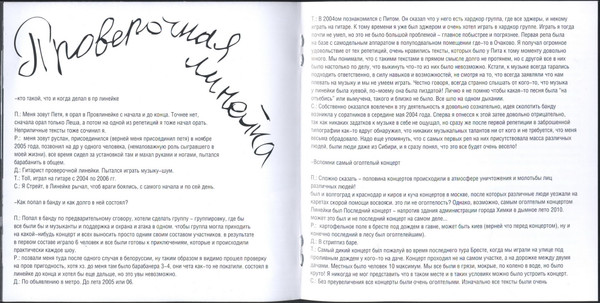 Проверочная
линейка
-кто такой, что и когда делал в пр линейке
П.: Меня зовут Петя, я орал в Провлинейке с начала и до конца. Точнее нет,
сначала орал только Леша, а потом на одной из репетиций я тоже начал орать.
Неприличные тексты тоже сочинял я.
Р.: меня зовут руслан, присоединился (верней меня присоединил петя) в ноябре
2005 года, позвонил на др у одного человека, (немаловажную роль сыгравшего в
моей жизни), все время сидел за установкой там и махал руками и ногами, пытался
барабанить в общем.
Д.: Гитарист проверочной линейки. Пытался играть музыку–шум.
Т.: Той, играл на гитаре с 2004 по 2006 г.
С.: Я Стрейт, в Линейке рычал, чтоб враги боялись, с самого начала и по сей день.
-Как попал в банду и как долго в ней состоял?
П.: Попал в банду по предварительному сговору, хотели сделать группу – группировку, где бы
все были бы и музыканты и поддержка и охрана и атака в одном. чтобы группа могла приходить
на какой-нибудь концерт и всех выносить просто одним своим составом участников. в результате
в первом составе играло 6 человек и все были готовы к приключениям, которые и происходили
практически каждое шоу.
Р.: позвали меня туда после одного случая в белоруссии, ну таким образом я видимо прошел проверку
на пров пригодность, хотя хз. до меня там было барабанера 3–4, они чета как-то не покатили. состоял в
линейке до конца и хотел бы еще дольше, но это увы невозможно.
Д.: По объявлению в метро. До лета 2005 или 06.
Т.: В 2004ом познакомился с Питом. Он сказал что у него есть хардкор группа, где все эджеры, и некому
играть на гитаре. К тому времени я уже был эджером и очень хотел играть в хардкор группе. Играть я тогда
почти не умел, но это не было большой проблемой – главное побыстрее и погрязнее. Первая репа была
на базе с самодельным аппаратом в полуподвальном помещении где-то в Очаково. Я получал огромное
удовольствие от тех репетиций, очень нравились тексты, которых было у Пита к тому моменту довольно
много. Мы понимали, что с такими текстами в прямом смысле долго не протянем, но с другой все в них
было настолько по делу, что выкинуть что-то из них было невозможно. Кстати, к музыке всегда старались
подходить ответственно, в силу навыков и возможностей, не смотря на то, что всегда заявляли что нам
плевать на музыку и мы не умеем играть. Честно говоря, всегда странно слышать от кого–то, что музыка
у линейки была хуевой, по–моему она была пиздатой! Лично я не помню чтобы какая-то песня была "на
отъебись" или вымучена, такого и близко не было. Все шло на одном дыхании.
С.: Собственно оказался вовлечен в эту деятельность я довольно сознательно, идея сколотить банду
возникла у соратников в середине мая 2004 года. Сперва я отнесся к этой затее довольно отрицательно,
так как никаких задатков к музыке в себе не ощущал, но сразу же после первой репетиции в заброшенной
типографии как-то вдруг обнаружил, что никаких музыкальных талантов ни от кого и не требуется, что меня
весьма обрадовало. Надо еще упомянуть, что с самых первых реп на них присутствовала масса различных
людей, были люди даже из Сибири, и я сразу понял, что это все будет очень весело!
-Вспомни самый оголтелый концерт
П.: Сложно сказать – половина концертов происходили в атмосфере уничтожения и молотьбы лиц
различных людей!
был и волгоград и краснодар и киров и куча концертов в москве, после которых различные люди уезжали на
каретах скорой помощи восвояси. это ли не оголтелость? Однако, возможно, самым оголтелым концертом
Линейки был Последний концерт – напротив здания администрации города Химки в дымное лето 2010.
может это был и не последний концерт на самом деле...
Р.: картофельное поле в бресте под дождем в говне, может быть киев (верней что перед концертом), ну и
конечно последний в лесу был оголтелым(ну мы оголяли).
Д.: В стриптиз баре.
Т.: Самый дикий концерт был пожалуй во время последнего тура Бресте, когда мы играли на улице под
проливным дождем у кого–то на даче. Концерт проходил не на самом участке, а на дорожке между двумя
дачами. Местных было человек 10 максимум. Мы все были в грязи, мокрые, по колено в воде, но было
круто! Я никогда не мог представить что в таком месте и в таких условиях можно было устроить концерт.
С.: Без преувеличения все концерты были очень оголтелыми. Были очень веселыми. Были очень